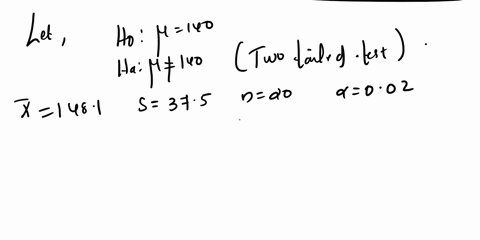 Let, Ho: μ = 140
Ha: μ ≠ 140 (Two failed test).
x̄ = 148.1 S = 37.5 n = 20 α = 0.02